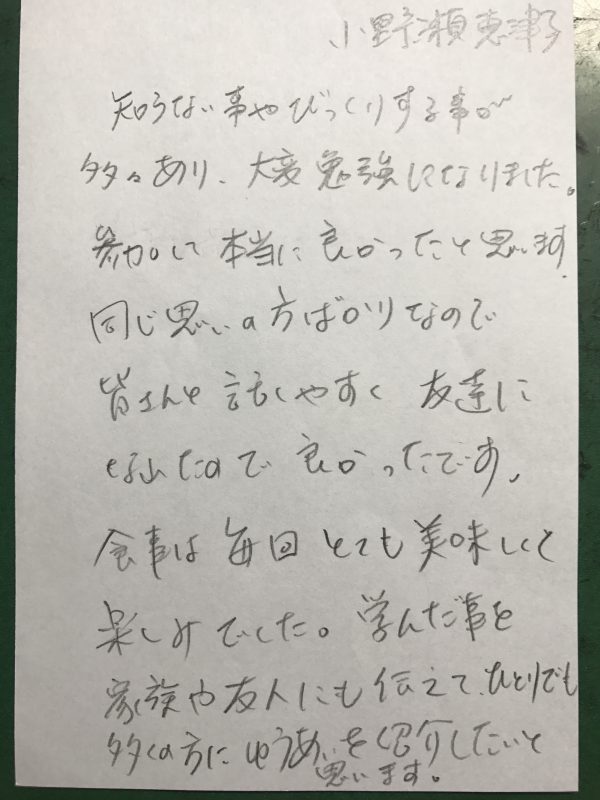 小野瀬恵津子
知らない事やびっくりする事が
多々あり、大変勉強になりました。
参加して本当に良かったと思います
同じ思いの方ばかりなので
皆さんと話しやすく友達に
なれたので良かったです。
食事は毎回とても美味しくて
楽しみでした。学んだ事を
家族や友人にも伝えて、ひとりでも
多くの方にゆうあいを紹介したいと
思います。